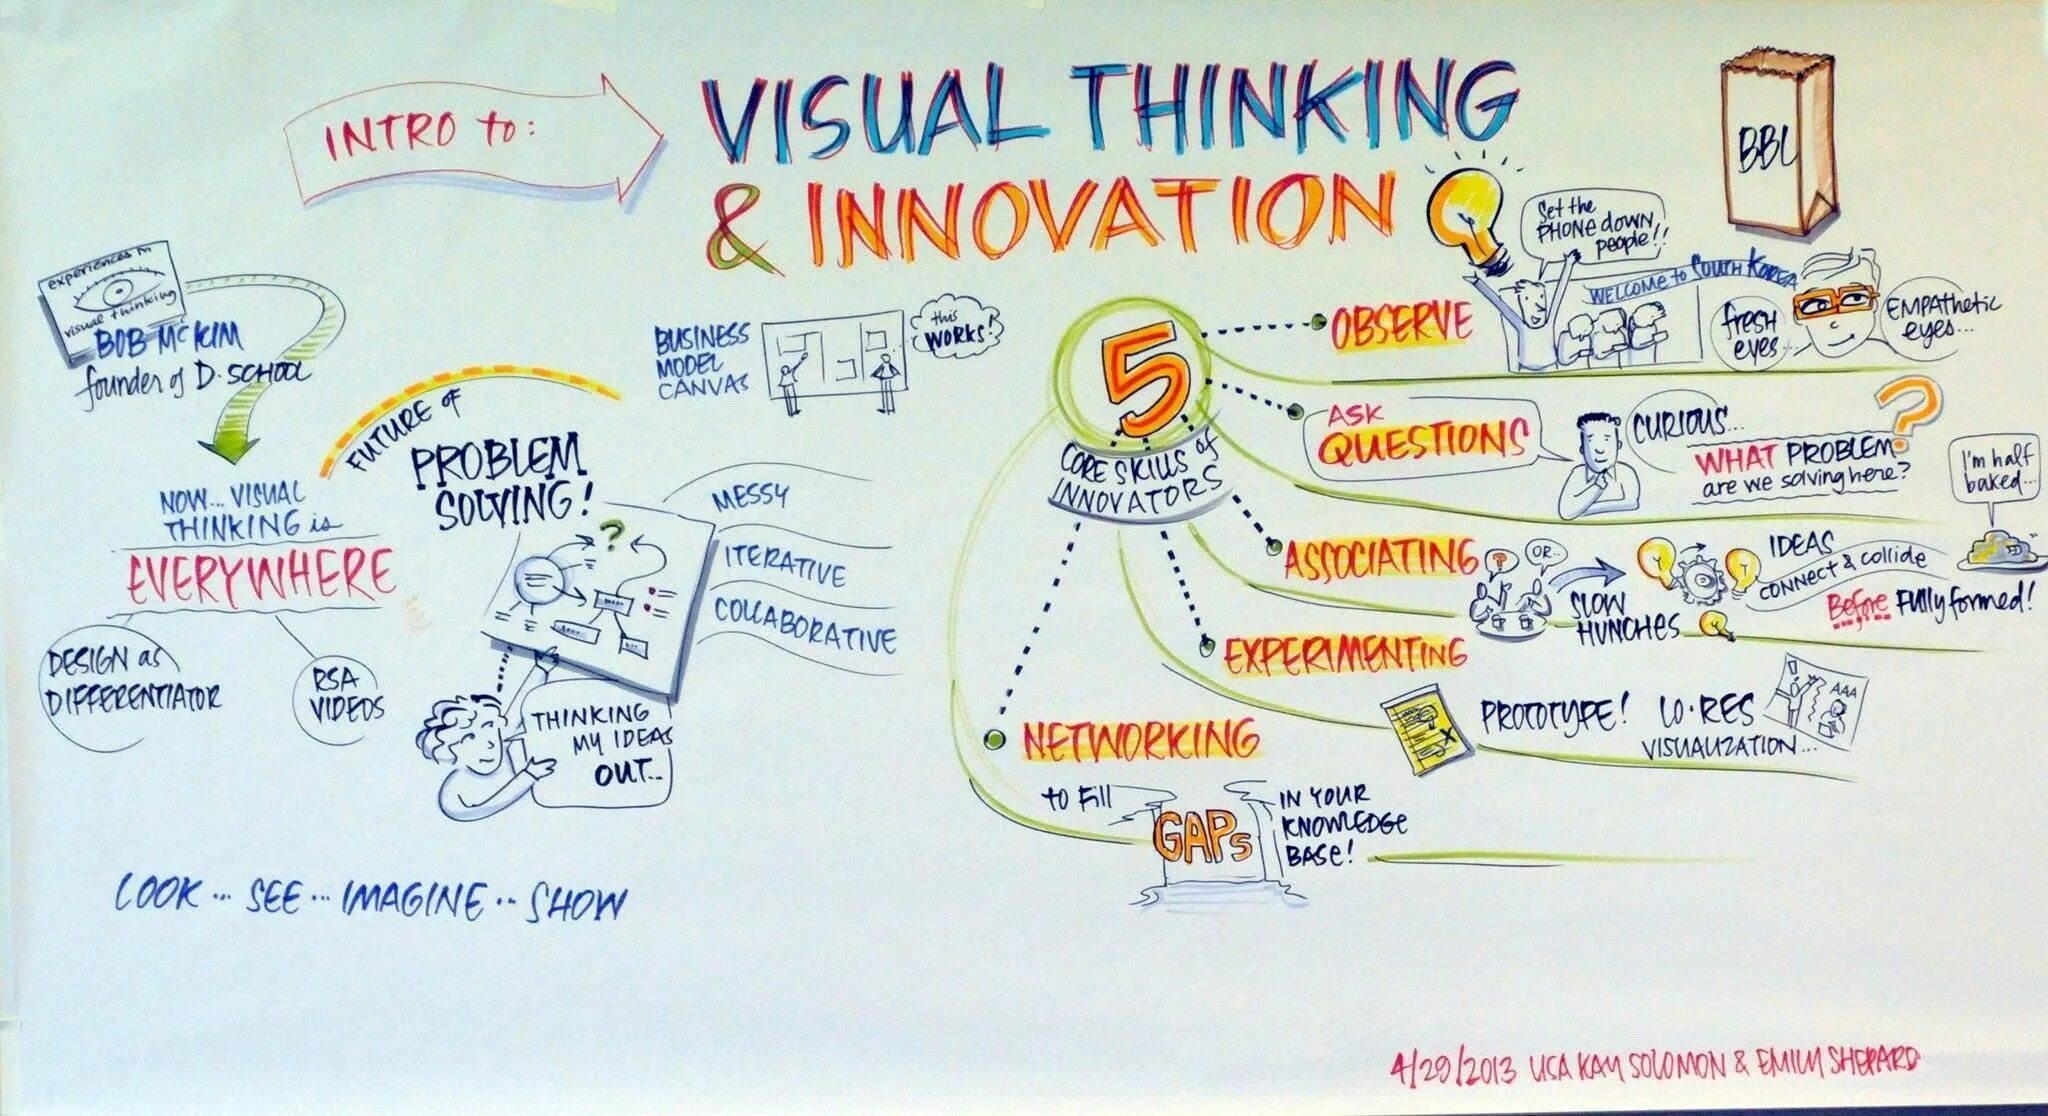 INTRO to:
VISUAL THINKING
& INNOVATION
BBL
experiences in
visual thinking
BOB McKIM
founder of D.SCHOOL
NOW... VISUAL
THINKING is
EVERYWHERE
DESIGN as
DIFFERENTIATOR
RSA
VIDEOS
FUTURE OF
PROBLEM
SOLVING!
BUSINESS
MODEL
CANVAS
this
WORKS!
?
MESSY
ITERATIVE
COLLABORATIVE
THINKING
MY IDEAS
OUT...
LOOK ... SEE ... IMAGINE .. SHOW
5
CORE SKILLS of
INNOVATORS
OBSERVE
Set the
PHONE down,
people!!
WELCOME to SOUTH KOREA
fresh
eyes...
EMPATHETIC
eyes...
ASK
QUESTIONS
CURIOUS...
WHAT PROBLEM
are we solving here?
?
ASSOCIATING
?
OR...
SLOW
HUNCHES
IDEAS
CONNECT & collide
Before Fully formed!
I'm half
baked...
EXPERIMENTING
PROTOTYPE!
LO-RES
VISUALIZATION...
AAA
NETWORKING
to Fill
GAPs
IN YOUR
KNOWLEDGE
BASE!
4/29/2013 LISA KAY SOLOMON & EMILY SHEPARD